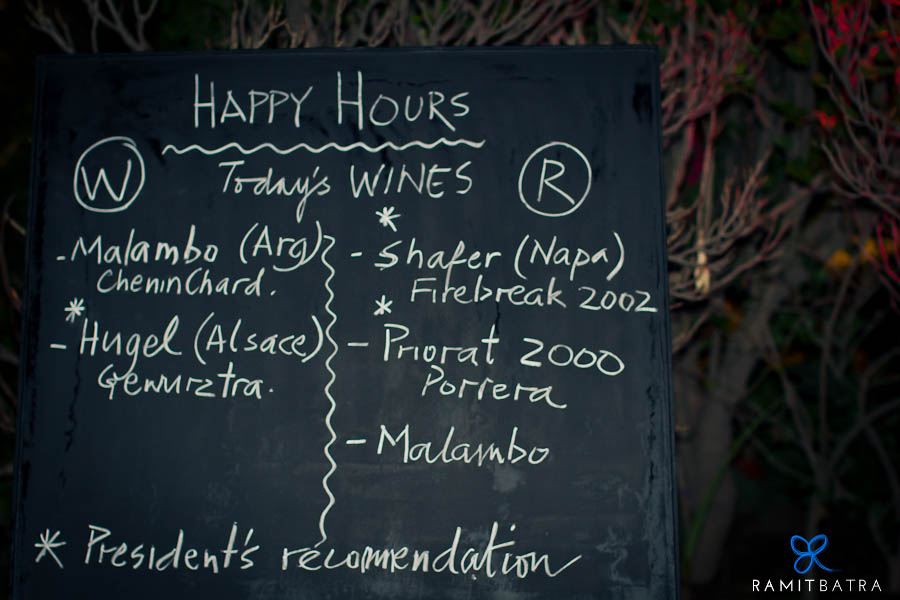 HAPPY HOURS
W
Today's WINES
R
- Malambo (Arg)
CheninChard.
*
- Hugel (Alsace)
Gewurztra.
*
- Shafer (Napa)
Firebreak 2002
*
- Priorat 2000
Porrera
- Malambo
* President's recommendation
RAMITBATRA